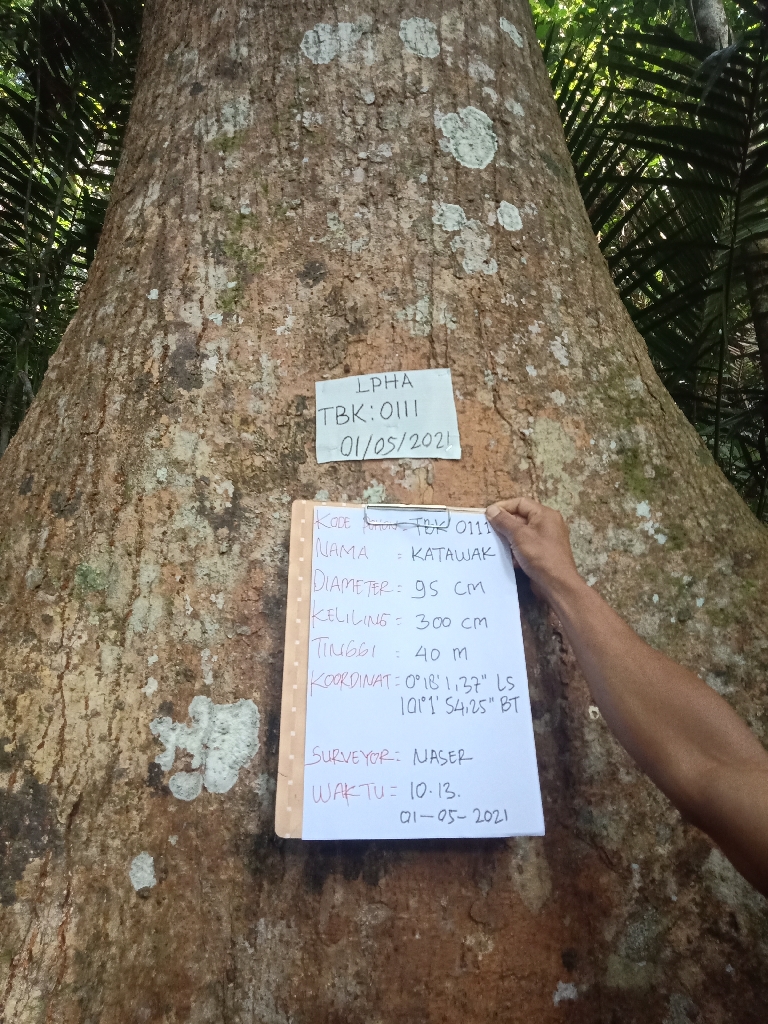 LPHA
TBK: 0111
01/05/2021
KODE POHON TBK 0111
NAMA = KATAWAK
DIAMETER = 95 CM
KELILING = 300 CM
TINGGI = 40 M
KOORDINAT = 0°18'1,37" LS
101°1' 54,25" BT
SURVEYOR = NASER
WAKTU = 10.13.
01-05-2021